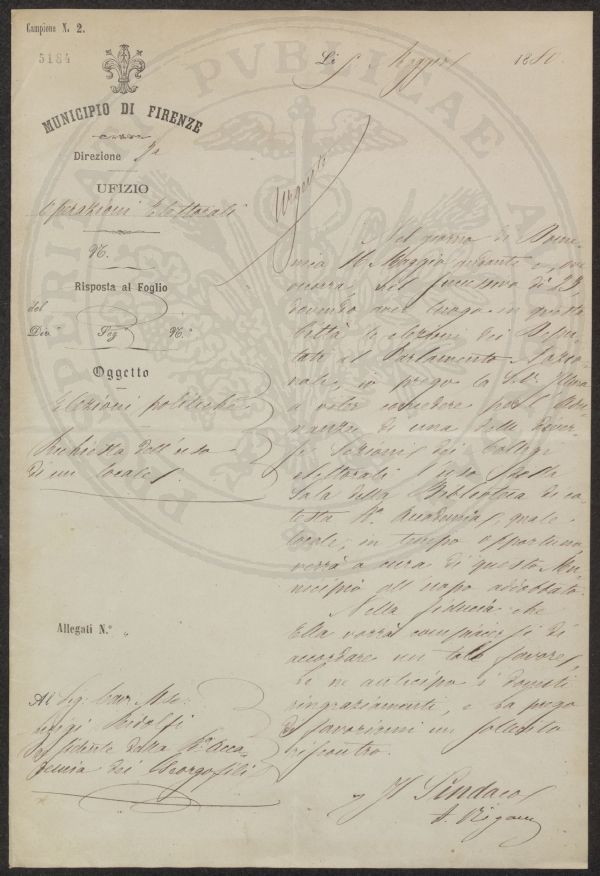 Campione N. 2.
5184
Lì 5 Maggio 1880
MUNICIPIO DI FIRENZE
Direzione 3a
UFIZIO
Operazioni Elettorali
N.
Risposta al Foglio
del
Div.e Sez.e N.o
Oggetto
Elezioni politiche
Richiesta dell'uso
di un locale
Allegati N.o
Al Sig: Cav: M.se
Luigi Ridolfi
Presidente della R.a Acca-
demia dei Georgofili
Urgente
Nel giorno di Dome-
nica 16 Maggio
del successivo dì 23
dovendo aver luogo in questa
Città le elezioni dei Depu-
tati al Parlamento Nazio-
nale, io prego la S.V. Ill.ma
a voler concedere per l'Adu-
nanza di una delle diver-
se Sezioni dei Collegi
elettorali l'uso della
Sala della Biblioteca di co-
testa R.a Accademia, quale
locale, in tempo opportuno,
verrà a cura di questo Mu-
nicipio all'uopo addobbato.
Nella fiducia che
Ella vorrà compiacersi di
accordare un tale favore,
Le ne anticipo i dovuti
ringraziamenti, e La prego
di favorirmi un sollecito
riscontro.
Il Sindaco
PUBLICAE